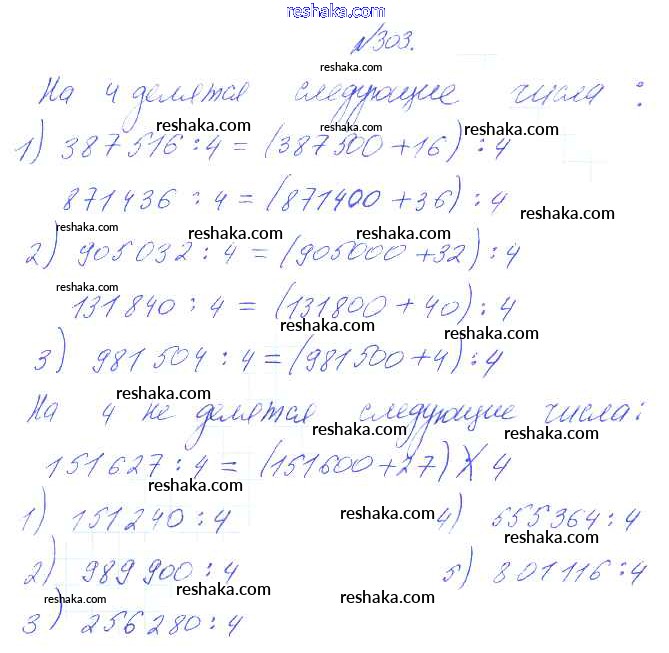 reshaka.com
№303.
reshaka.com
На 4 делятся следующие числа:
reshaka.com reshaka.com reshaka.com
1) 387516 : 4 = (387500 + 16) : 4
871436 : 4 = (871400 + 36) : 4
reshaka.com reshaka.com reshaka.com
2) 905032 : 4 = (905000 + 32) : 4
reshaka.com
131840 : 4 = (131800 + 40) : 4
reshaka.com
3) 981504 : 4 = (981500 + 4) : 4
reshaka.com reshaka.com
На 4 не делятся следующие числа:
reshaka.com
151627 : 4 = (151600 + 27) ⁒ 4
reshaka.com
1) 151240 : 4 reshaka.com 4) 555364 : 4
reshaka.com
2) 989900 : 4 5) 801116 : 4
reshaka.com reshaka.com reshaka.com
3) 256280 : 4